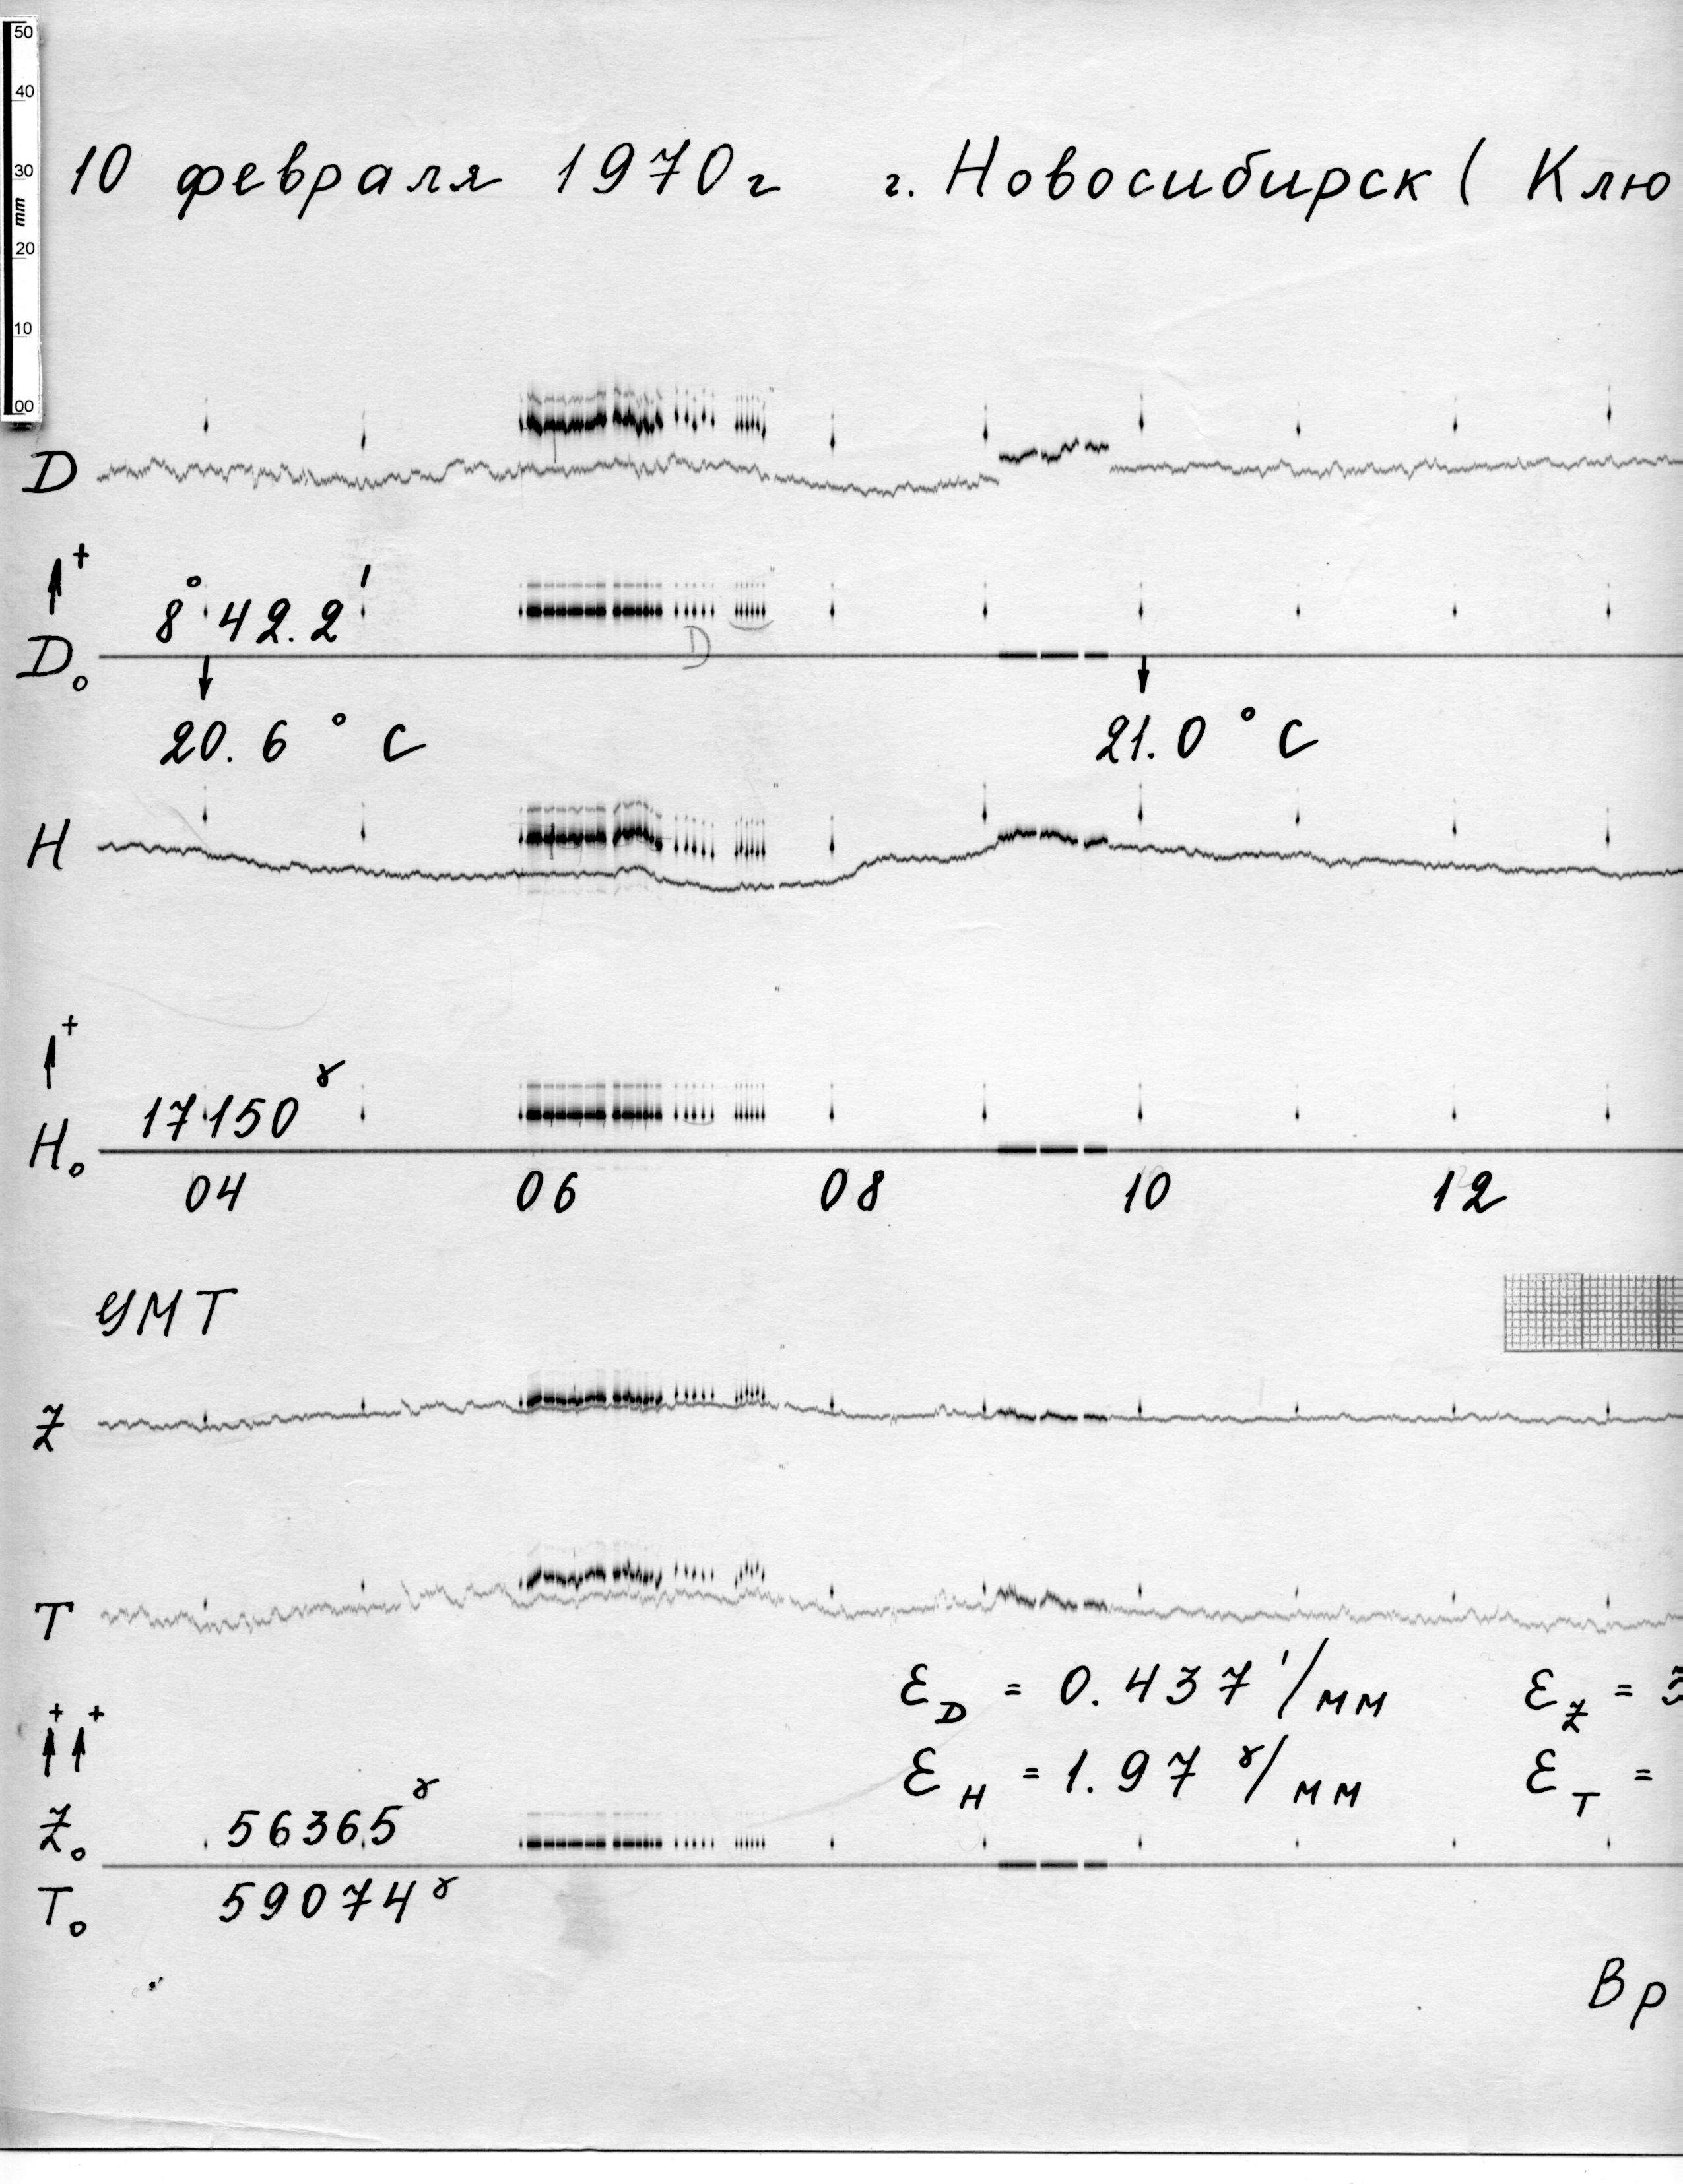 50
40
30
mm
20
10
00
10 февраля 1970г г. Новосибирск ( Клю
D
+
8° 42.2'
D
D₀
20.6 °C 21.0 °C
H
+
17150 γ
H₀
04 06 08 10 12
УМТ
Z
T
ε_D = 0.437 '/мм ε_Z = 3
+ +
ε_H = 1.97 γ/мм ε_T =
Z₀ 56365 γ
T₀ 59074 γ
Вр